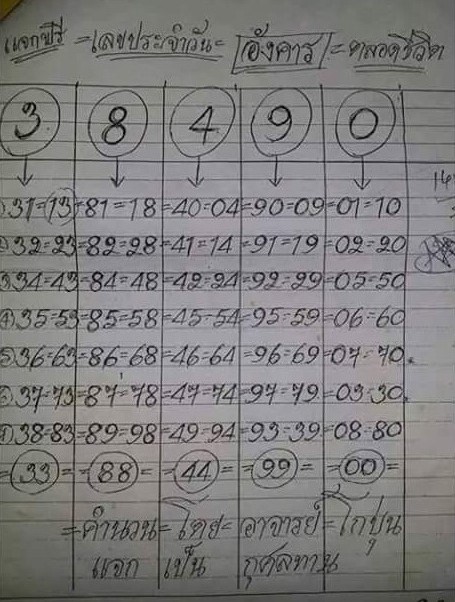 แจกฟรี =เลขประจำวัน= อังคาร = ตลอดชีวิต
3 8 4 9 0
31=13=81=18=40=04=90=09=01=10
32=23=82=28=41=14=91=19=02=20
34=43=84=48=42=24=92=29=05=50
④35=53=85=58=45=54=95=59=06=60
⑤36=63=86=68=46=64=96=69=07=70
37=73=87=78=47=74=97=79=03=30
38=83=89=98=49=94=93=39=08=80
=33= =88= =44= =99= =00=
=คำนวน=โดย=อาจารย์=โกปุน
แจก เป็น กุศลทาน